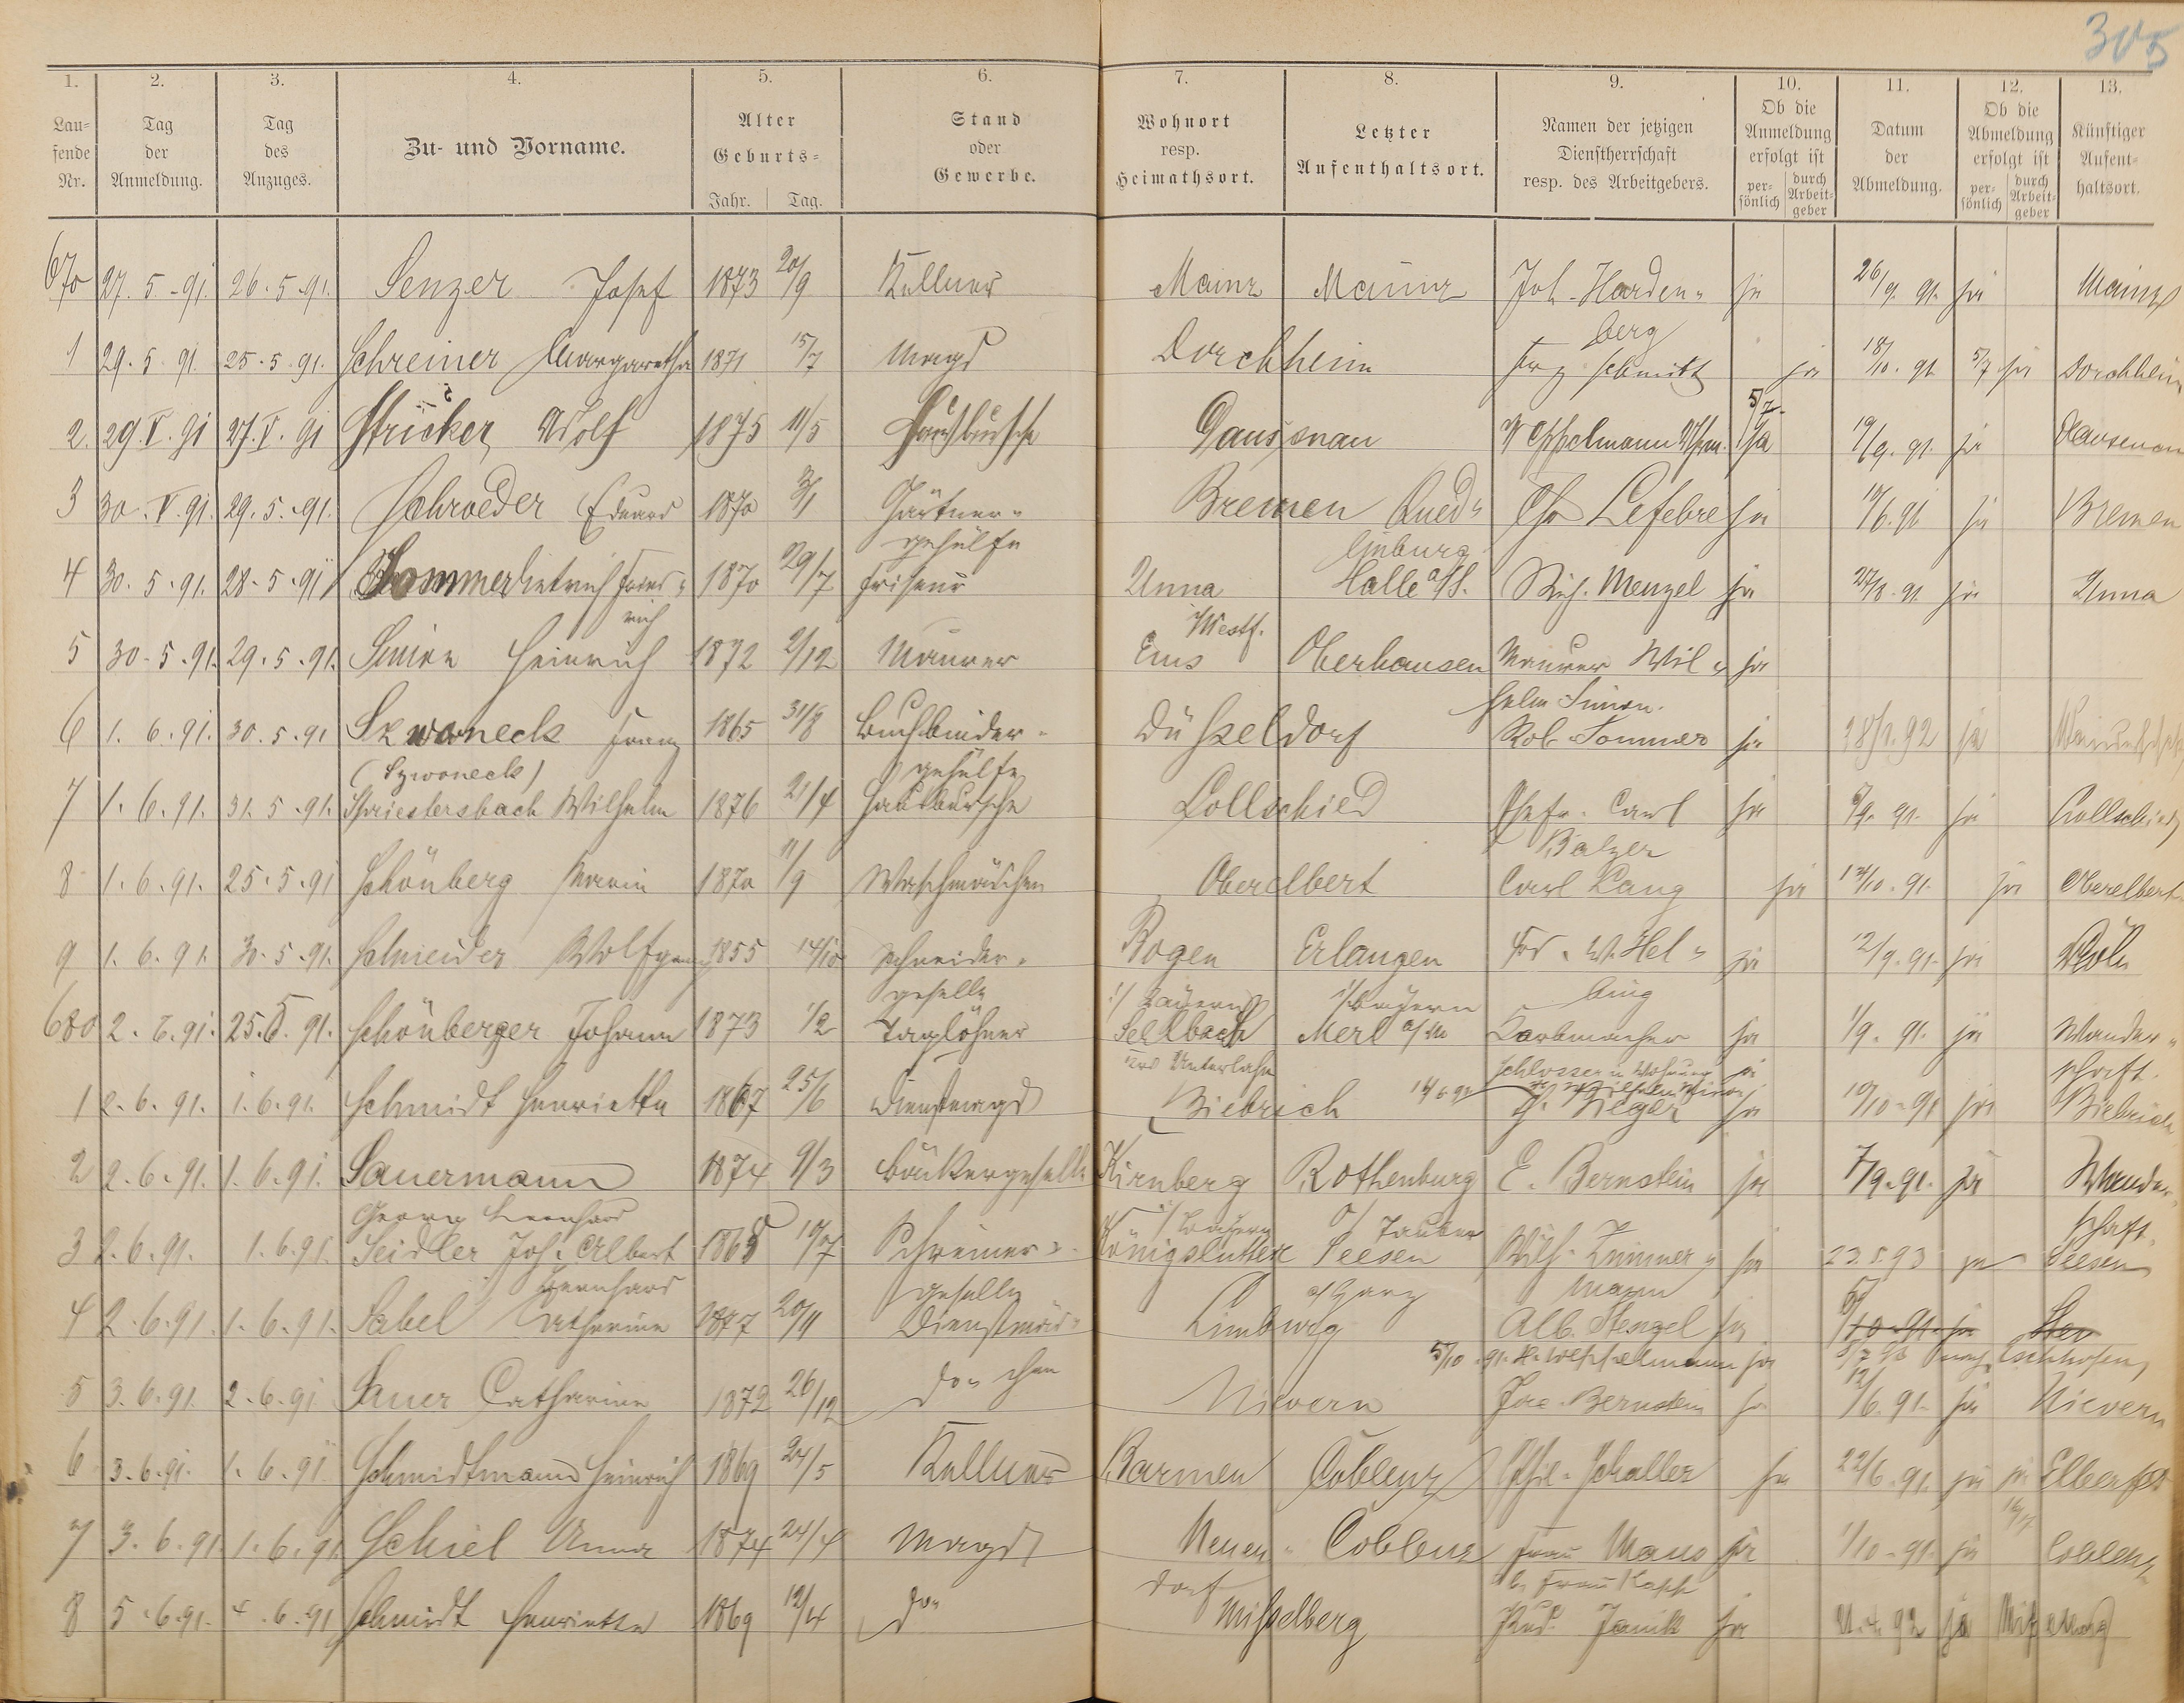 305
1. 2. 3. 4. 5. 6. 7. 8. 9. 10. 11. 12. 13.
Lau=fende Nr. Tag der Anmeldung. Tag des Anzuges. Zu- und Vorname. Alter Geburts= Jahr. Tag. Stand oder Gewerbe. Wohnort resp. Heimathsort. Letzter Aufenthaltsort. Namen der jetzigen Dienstherrschaft resp. des Arbeitgebers. Ob die Anmeldung erfolgt ist persönlich durch Arbeitgeber Datum der Abmeldung. Ob die Abmeldung erfolgt ist persönlich durch Arbeitgeber Künftiger Aufenthaltsort.
670 27. 5. 91. 26. 5. 91. Senzer Josef 1873 20/9 Kellner Mainz Mainz Joh. Harden- ja 26/9. 91. ja Mainz
berg
1 29. 5. 91. 25. 5. 91. Schreiner Margaretha 1871 15/7 Magd Dorchheim Schmitt ja 18/10. 91. 5/7 ja Dorchheim
2. 29. V. 91 27. V. 91 Stricker Adolf 1875 11/5 Hausbursche Dausenau ja 19/9. 91. ja Dausenau
3 30. V. 91. 29. 5. 91. Schroeder Eduard 1870 3/1 Gärtner- Bremen Qued- Lefebre ja 19/6. 91 ja Bremen
gehülfe linburg
4 30. 5. 91. 28. 5. 91 Sommer Dietrich Fried- 1870 29/7 Friseur Unna Halle a/S. Menzel ja 27/8. 91. ja Unna
rich i/Westf.
5 30. 5. 91. 29. 5. 91. Simon Heinrich 1872 2/12 Maurer Ems Oberhausen Maurer Wil- ja
helm Simon.
6 1. 6. 91. 30. 5. 91 Skwoneck Franz 1865 31/8 Buchbinder- Düsseldorf Rob. Sommer ja 92 ja
(Szwoneck) gehülfe
7 1. 6. 91. 31. 5. 91. Spriestersbach Wilhelm 1876 21/4 Hausbursche Lollschied Ehefr. Carl ja 91. ja Lollschied
Balzer
8 1. 6. 91. 25. 5. 91 Schönberg Maria 1870 11/9 Waschmädchen Oberelbert Carl Lang ja 14/10. 91. ja Oberelbert
9 1. 6. 91. 30. 5. 91. Schneider Wolfgang 1855 14/10 Schneider- Bogen Erlangen W. Hel- ja 12/9. 91. ja Cöln
geselle i/Bayern i/Bayern bing
680 2. 6. 91. 25. 5. 91. Schönberger Johann 1873 1/2 Taglöhner Seelbach Merl a/M Korbmacher ja 1/9. 91. ja Wander-
Unterlahn Schlosser u Wilhelm ja schaft.
1 2. 6. 91. 1. 6. 91. Schmidt Henriette 1867 25/6 Dienstmagd Biebrich 14. 6. 91 ja 10/10. 91 ja Biebrich
2 2. 6. 91. 1. 6. 91. Sauermann 1874 9/3 Bäckergeselle Kirnberg Rothenburg E. Bernstein ja 7/9. 91. ja Wander-
Georg Leonhard i/Bayern o/Tauber schaft.
3 2. 6. 91. 1. 6. 91. Seidler Joh. Albert 1865 19/7 Schreiner- Königslutter Seesen Wilh. Zimmer- ja 23. 5. 93 ja Seesen
Bernhard geselle a/Harz mann
4 2. 6. 91. 1. 6. 91. Sabel Catharine 1877 20/11 Dienstmäd- Limburg Alb. Stenzel ja 10. 91. ja
chen 5/10. 91. H. Weppelmann ja Eschhofen
5 3. 6. 91. 2. 6. 91 Sauer Catharine 1872 26/12 do Nievern Bernstein ja 12/6. 91. ja Nievern
6 3. 6. 91. 1. 6. 91 Schmidtmann Heinrich 1869 24/5 Kellner Barmen Coblenz Phil. Schaller ja 22/6. 91. ja ja Elberfeld
7 3. 6. 91. 1. 6. 91. Schiel Anna 1874 24/4 Magd Neuen- Coblenz Frau Maus ja 1/10. 91. ja Coblenz
dorf Frau
8 5. 6. 91. 4. 6. 91 Schmidt Henriette 1869 19/4 do Misselberg Rud. Janik ja 92 ja Misselberg